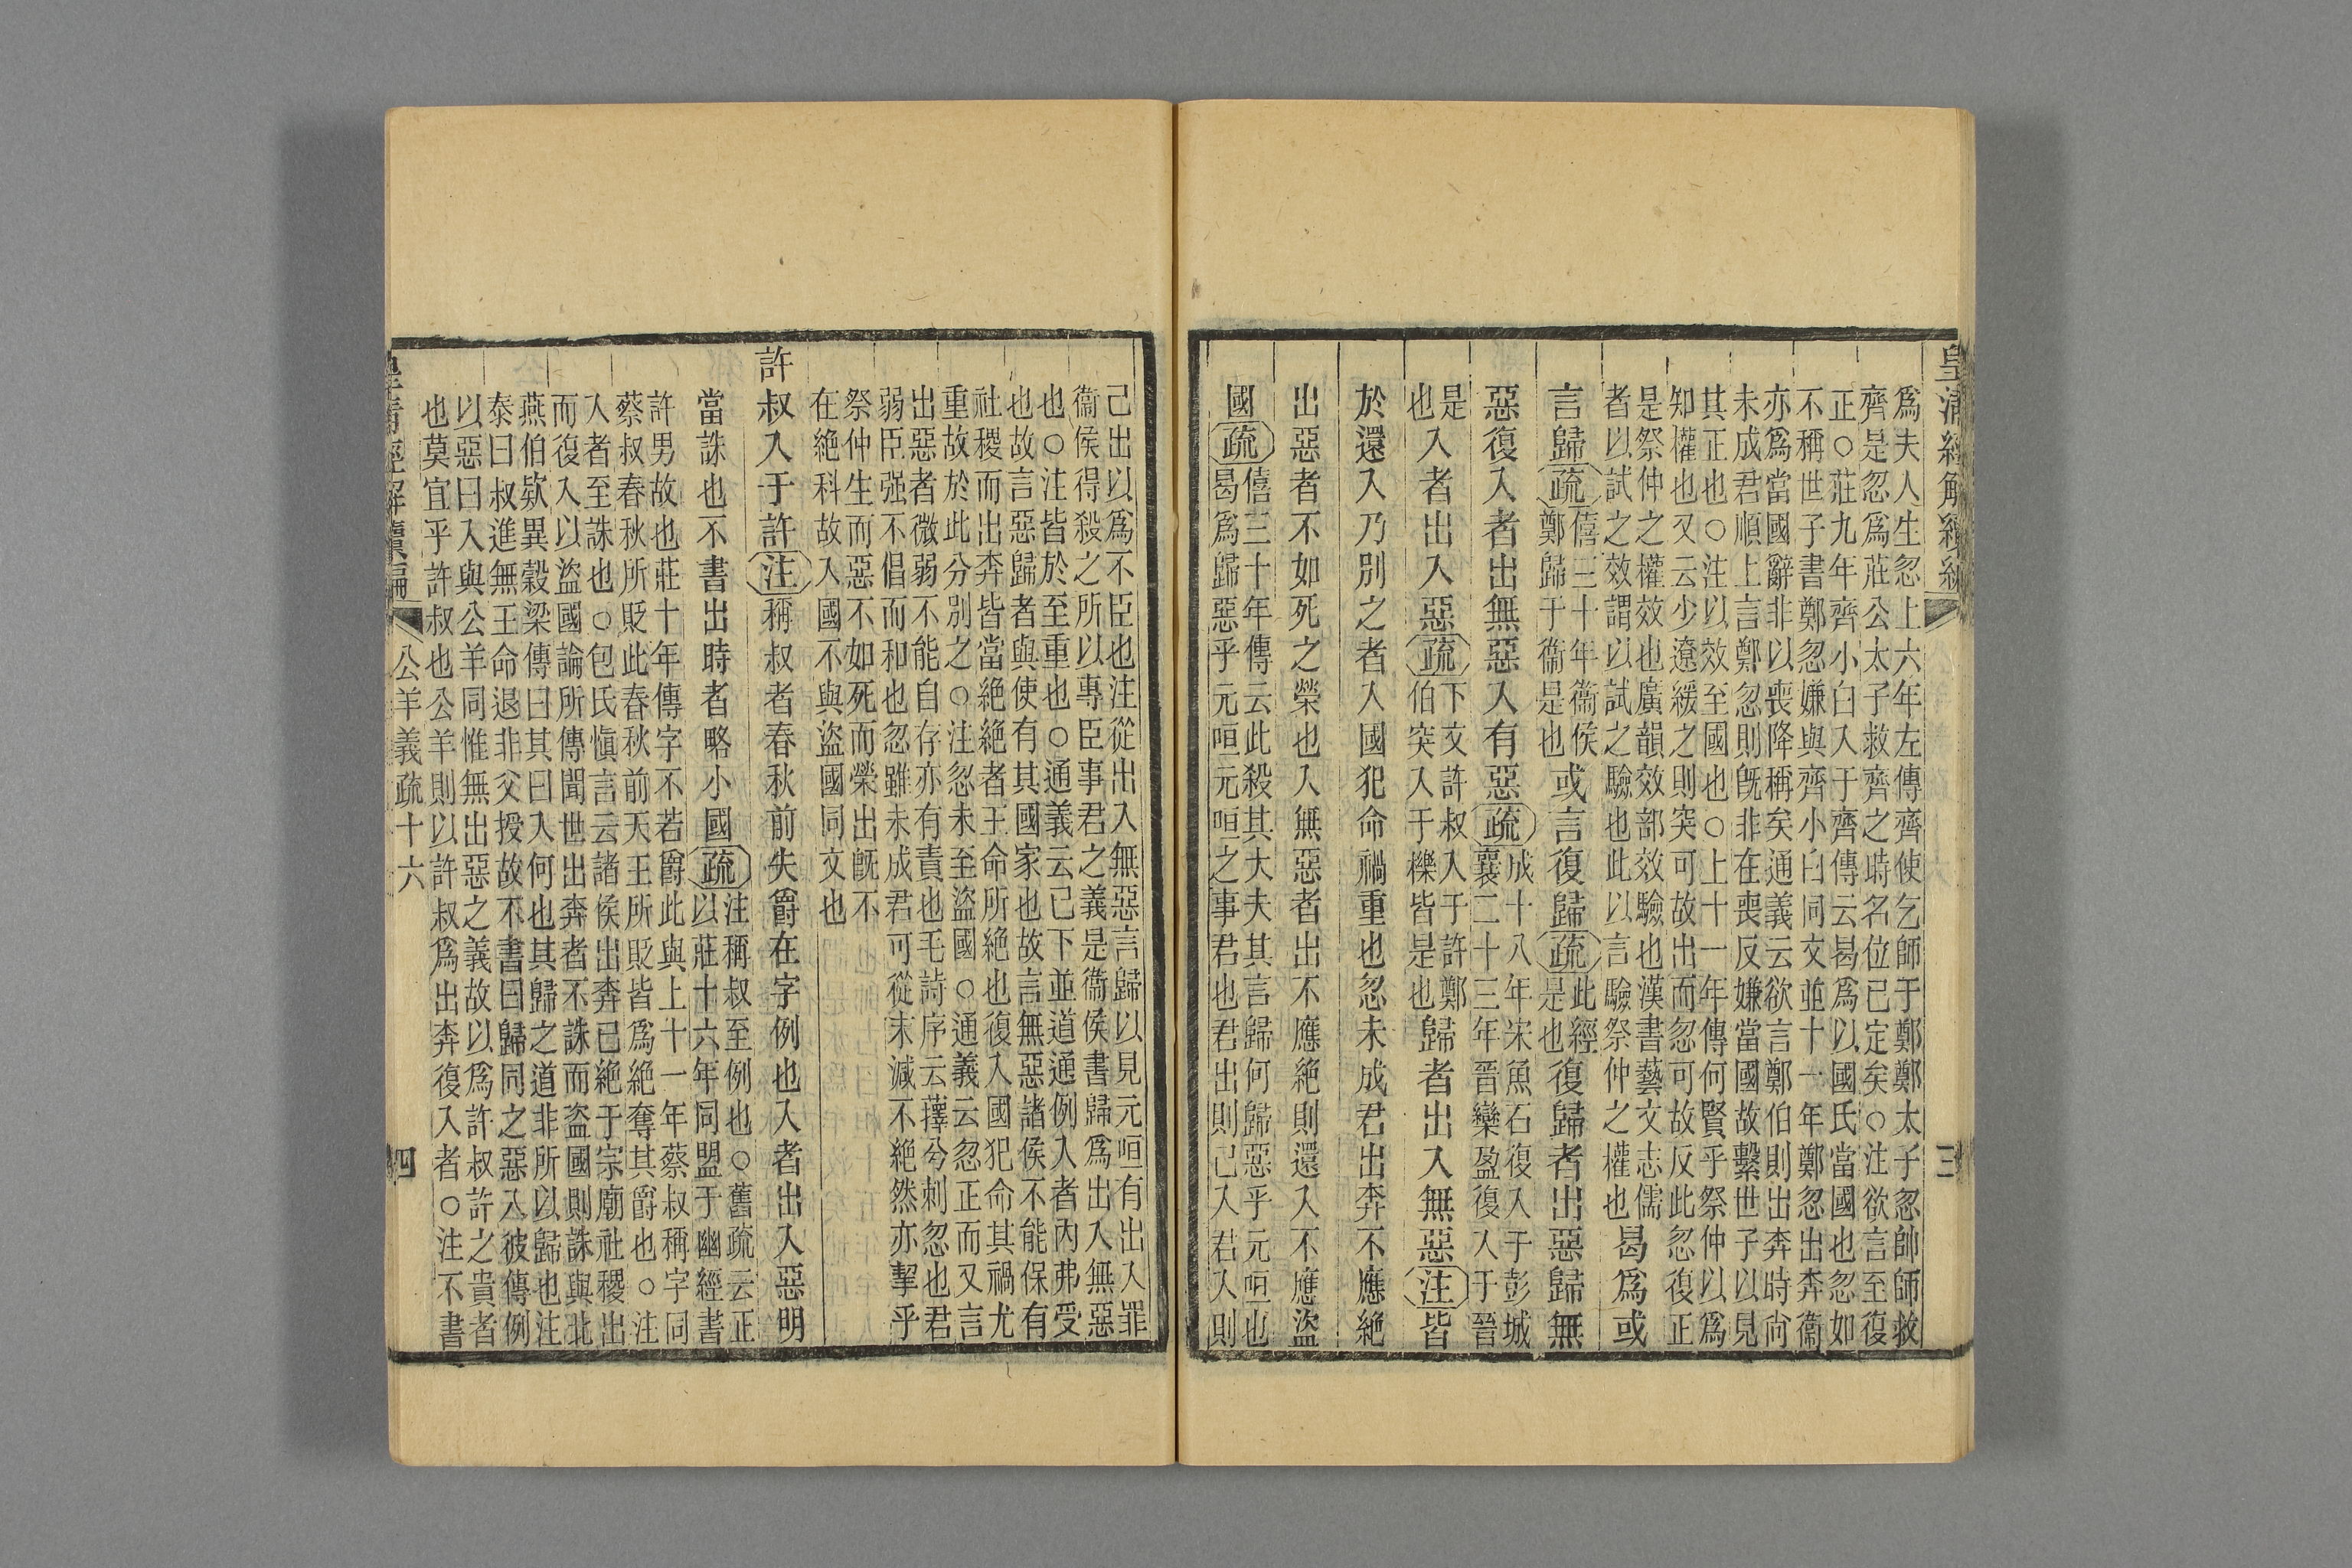 皇清經解續編 三
爲夫人生忽上六年左傳齊使乞師于鄭鄭太子忽帥師救
齊是忽爲莊公太子救齊之時名位已定矣○注欲言至復
正○莊九年齊小白入于齊傳云曷爲以國氏當國也忽如
不稱世子書鄭忽嫌與齊小白同文並十一年鄭忽出奔衞
亦爲當國辭非以喪降稱矣通義云欲言鄭伯則出奔時尚
未成君順上言鄭忽則旣非在喪反嫌當國故繫世子以見
其正也○注以效至國也○上十一年傳何賢乎祭仲以爲
知權也又云少遼緩之則突可故出而忽可故反此忽復正
是祭仲之權效也廣韻效部效驗也漢書藝文志儒
者以試之效謂以試之驗也此以言驗祭仲之權也曷爲或
言歸疏僖三十年衞侯鄭歸于衞是也或言復歸疏此經是也復歸者出惡歸無
惡復入者出無惡入有惡疏成十八年宋魚石復入于彭城襄二十三年晉欒盈復入于晉
是也入者出入惡疏下文許叔入于許鄭伯突入于櫟皆是也歸者出入無惡注皆
於還入乃別之者入國犯命禍重也忽未成君出奔不應絕
出惡者不如死之榮也入無惡者出不應絕則還入不應盜
國疏僖三十年傳云此殺其大夫其言歸何歸惡乎元咺也曷爲歸惡乎元咺元咺之事君也君出則己入君入則
己出以爲不臣也注從出入無惡言歸以見元咺有出入罪
衞侯得殺之所以專臣事君之義是衞侯書歸爲出入無惡
也○注皆於至重也○通義云已下並道通例入者內弗受
也故言惡歸者與使有其國家也故言無惡諸侯不能保有
社稷而出奔皆當絕絕者王命所絕也復入國犯命其禍尤
重故於此分別之○注忽未至盜國○通義云忽正而又言
出惡者微弱不能自存亦有責也毛詩序云蘀兮刺忽也君
弱臣强不倡而和也忽雖未成君可從末減不絕然亦挈乎
祭仲生而惡不如死而榮出旣不
在絕科故入國不與盜國同文也
許叔入于許注稱叔者春秋前失爵在字例也入者出入惡明
當誅也不書出時者略小國疏注稱叔至例也○舊疏云正以莊十六年同盟于幽經書
許男故也莊十年傳字不若爵此與上十一年蔡叔稱字同
蔡叔春秋所貶此春秋前天王所貶皆爲絕奪其爵也○注
入者至誅也○包氏愼言云諸侯出奔已絕于宗廟社稷出
而復入以盜國論所傳聞世出奔者不誅而盜國則誅與北
燕伯欵異穀梁傳曰其曰入何也其歸之道非所以歸也注
泰曰叔進無王命退非父授故不書曰歸同之惡入彼傳例
以惡曰入與公羊同惟無出惡之義故以爲許叔許之貴者
也莫宜乎許叔也公羊則以許叔爲出奔復入者○注不書
皇清經解續編 公羊義疏十六 四